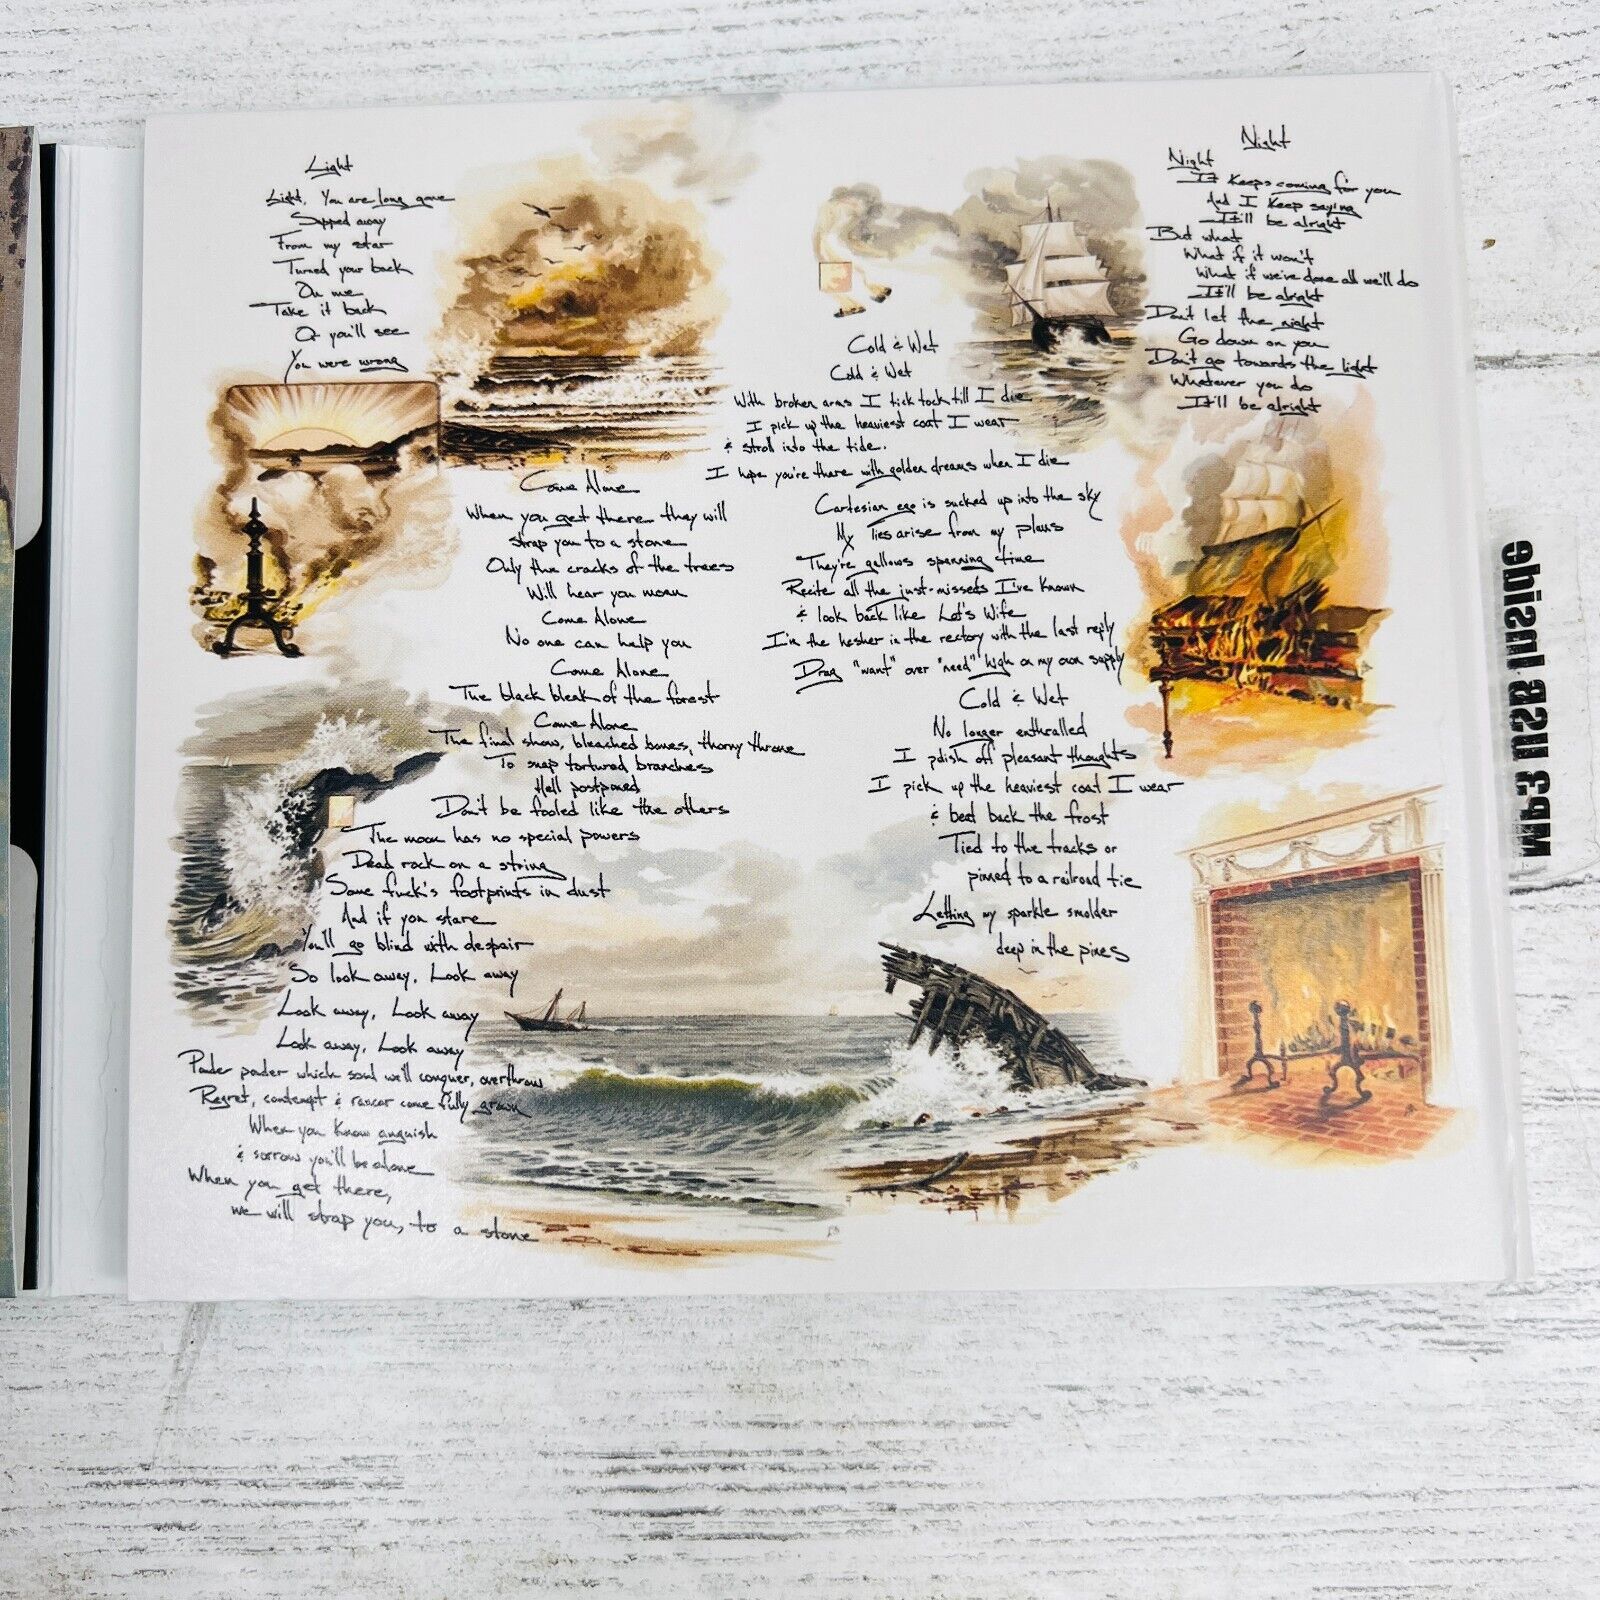 Light
Light, You are long gone
Sipped away
From my star
Turned your back
On me
Take it back
Or you'll see
You were wrong
Come Alone
When you get there they will
strap you to a stone
Only the cracks of the trees
Will hear you moan
Come Alone
No one can help you
Come Alone
The black bleak of the forest
Come Alone
The final show, bleached bones, thorny throne
To snap tortured branches
Hell postponed
Don't be fooled like the others
The moon has no special powers
Dead rock on a string
Some fuck's footprints in dust
And if you stare
You'll go blind with despair
So look away, Look away
Look away, Look away
Look away, Look away
Ponder ponder which soul we'll conquer, overthrow
Regret, contempt & rancor come fully grown
When you know anguish
& sorrow you'll be alone
When you get there,
we will strap you, to a stone
Cold & Wet
Cold & Wet
With broken arms I tick tock till I die
I pick up the heaviest coat I wear
& stroll into the tide.
I hope you're there with golden dreams when I die
Cartesian ego is sucked up into the sky
My Ties arise from my plans
They're gallows spanning time
Recite all the just-misseds I've known
& look back like Lot's Wife
I'm the hesher in the rectory with the last reply
Drag "want" over "need" high on my own supply
Cold & Wet
No longer enthralled
I polish off pleasant thoughts
I pick up the heaviest coat I wear
& beat back the frost
Tied to the tracks or
pinned to a railroad tie
Letting my sparkle smolder
deep in the pines
Night
Night
It keeps coming for you
And I keep saying
It'll be alright
But what
What if it won't
What if we've done all we'll do
It'll be alright
Don't let the night
Go down on you
Don't go towards the light
Whatever you do
It'll be alright
Mp3 USA Inside